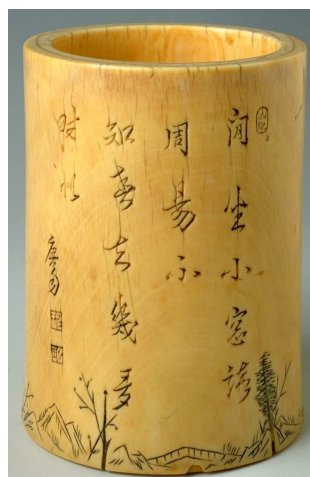 閒坐小窗讀
周易不
知春去幾多
時
唐寅